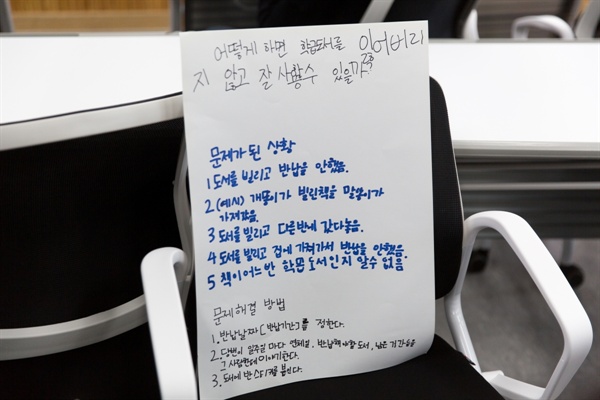 어떻게 하면 학급도서를 잃어버리
지 않고 잘 사용할수 있을까?
문제가 된 상황
1 도서를 빌리고 반납을 안했음.
2 (예시) 개똥이가 빌린책을 말똥이가
가져갔음.
3 도서를 빌리고 다른반에 갔다놓음.
4 도서를 빌리고 집에 가져가서 반납을 안했음.
5 책이 어느반 학급 도서인지 알수 없음
문제 해결 방법
1. 반납날짜 [반납기간]를 정한다.
2. 당번이 일주일 마다 언제검, 반납해야할 도서, 남은 기간 등을
그 사람한테 이야기한다.
3. 도서에 반 스티커를 붙인다.